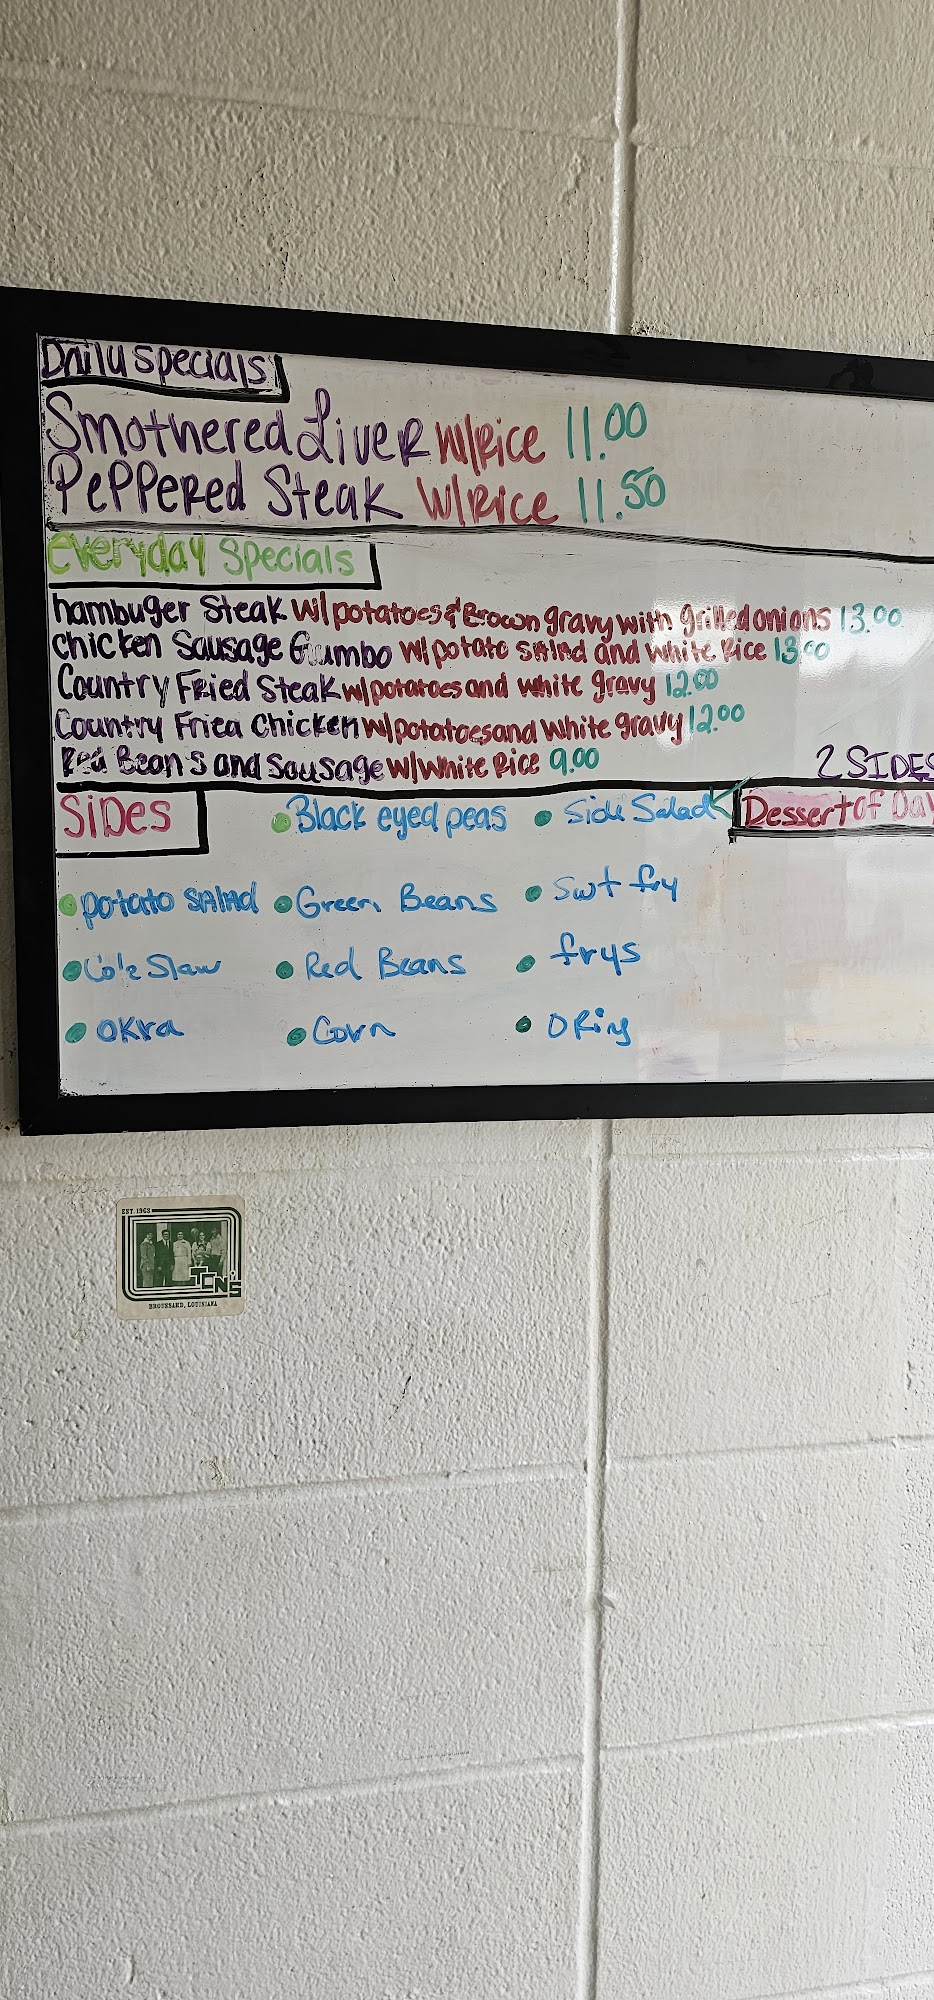 Daily specials
Smothered Liver w/Rice 11.00
Peppered Steak w/Rice 11.50
everyday specials
hambuger Steak w/potatoes & Brown gravy with grilled onions 13.00
chicken Sausage Gumbo w/potato salad and white Rice 13.00
Country Fried Steak w/potatoes and white gravy 12.00
Country Fried Chicken w/potatoes and white gravy 12.00
Red Beans and Sausage w/white Rice 9.00
2 SIDES
Sides
Black eyed peas
Side Salad
Dessert of Day
potato salad
Green Beans
Swt fry
Cole Slaw
Red Beans
frys
okra
Corn
O Ring
EST. 1963
TCN'S
BROUSSARD, LOUISIANA